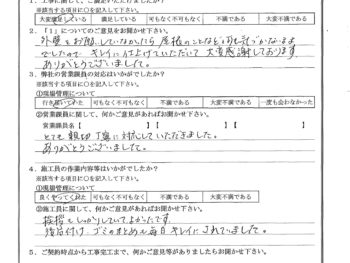 1. 工事に関して、ご満足いただけましたか?
※該当する項目に○を記入して下さい。
大変満足している 満足している 可もなく不可もなく 不満である 大変不満である
2. 「1」についてのご意見をお聞かせ下さい。
外壁をお願いしていなかったら屋根のことなど
でしたので キレイに仕上げていただいて 大変感謝しております
ありがとうございました。
3. 弊社の営業課員の対応はいかがでしたか?
※該当する項目に○を記入して下さい。
①現場管理について
行き届いていた 可もなく不可もなく 不満である 大変不満である 一度も会わなかった
②営業課員に関して、何かご意見があればお聞かせ下さい。
営業課員名【 】【 】【 】
とても親切丁寧に対応していただきました。
ありがとうございました。
4. 施工員の作業内容等はいかがでしたか?
※該当する項目に○を記入して下さい。
①現場管理について
良くやってくれた 可もなく不可もなく 不満である 大変不満である
②施工員に関して、何かご意見があればお聞かせ下さい。
挨拶もしっかりしていてよかったです。
後片付け、ゴミのまとめも毎日キレイにされていました。
5. ご契約時点から工事完工まで、何かご意見等がありましたらお聞かせ下さい。